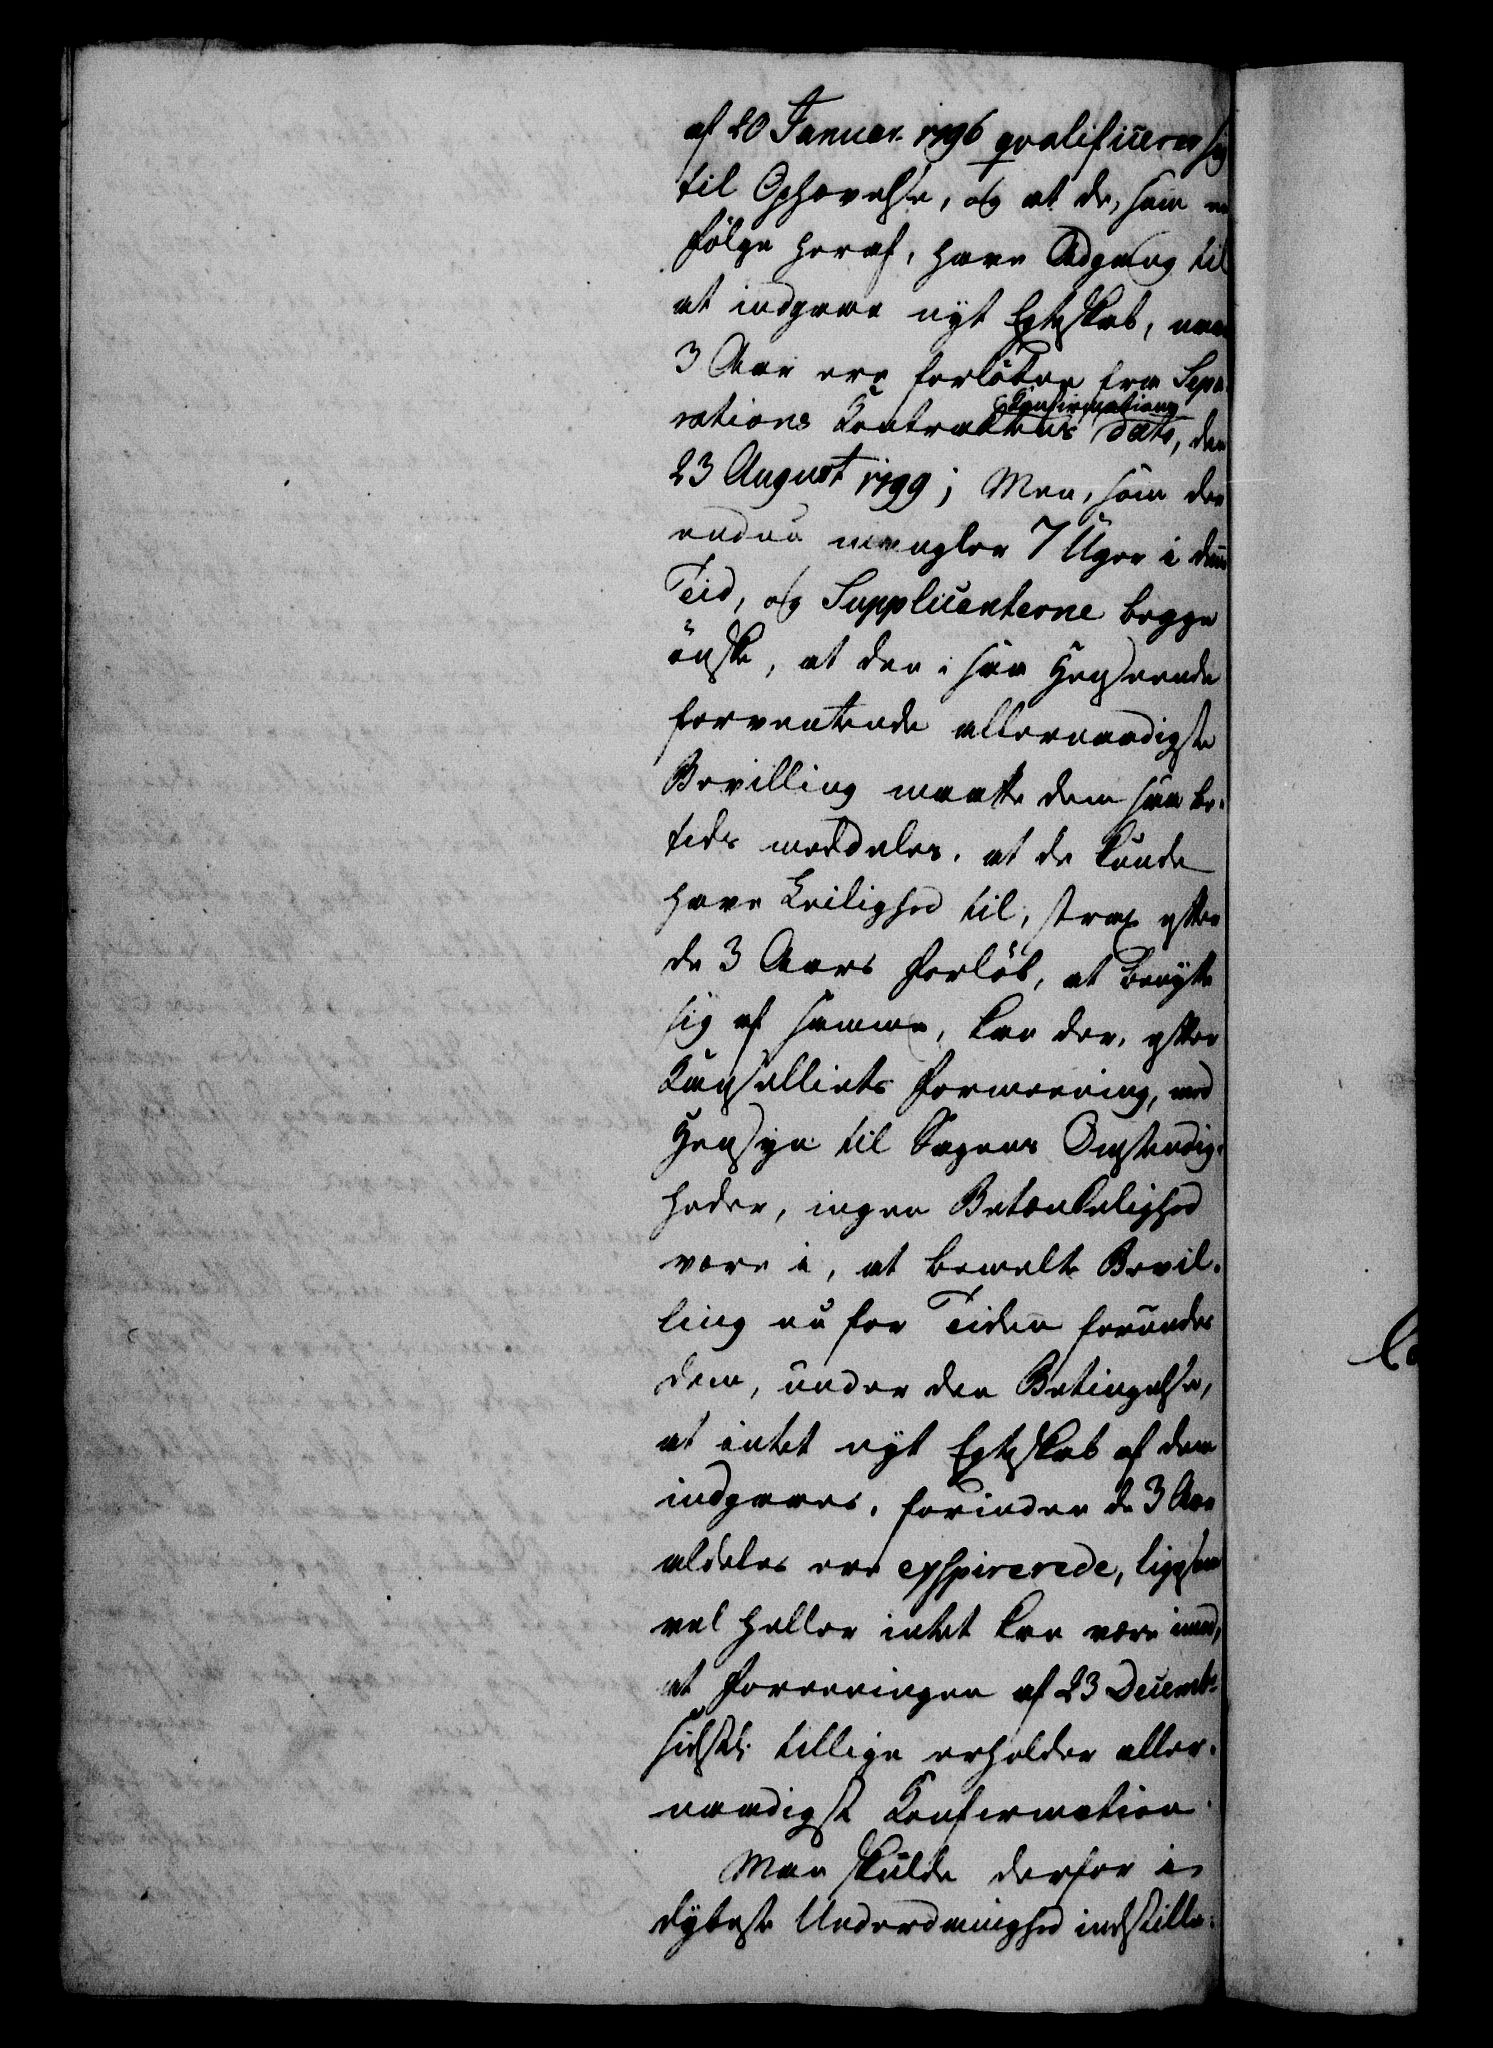 af 20 Januar. 1796 qvalificerer sig
til Ophævelse, og at de, som en
Følge heraf, have Adgang til
at indgaae nyt Egteskab, naar
3 Aar ere forløbne fra Sepa-
rations Contractens Confirmations Dato, den
23 August 1799; Men, som der
endnu mangler 7 Uger i denne
Tid, og Supplicanterne begge
ønske, at den i saa Henseende
forventende allernaadigste
Bevilling maatte dem saa be-
tids meddeles, at de kunde
have Leilighed til, strax efter
de 3 Aars Forløb, at benytte
sig af samme, kan der, efter
Cancelliets Formeening, med
Hensyn til Sagens Omstændig-
heder, ingen Betænkelighed
være i, at bemelte Bevil-
ling nu for Tiden forundes
dem, under den Betingelse,
at intet nyt Egteskab af dem
indgaaes, forinden de 3 Aar
aldeles ere exspirerede, ligesom
vel heller intet kan være imod,
at Foreeningen af 23 Decembr.
sidstl. tillige erholder aller-
naadigst Confirmation.
Man skulde derfor i
dybeste Underdanighed indstille: